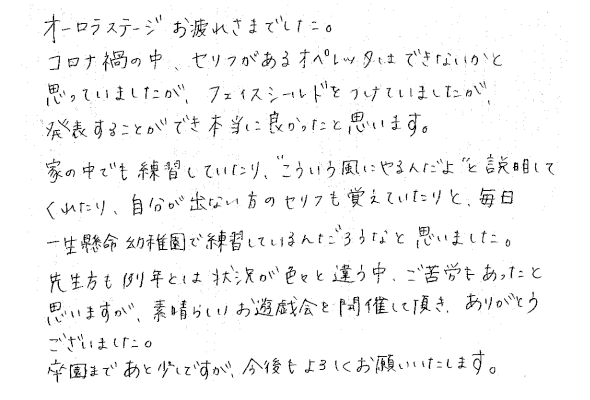 オーロラステージお疲れさまでした。
コロナ禍の中、セリフがあるオペレッタはできないかと
思っていましたが、フェイスシールドをつけていましたが、
発表することができ本当に良かったと思います。
家の中でも練習していたり、"こういう風にやるんだよ"と説明して
くれたり、自分が出ない方のセリフも覚えていたりと、毎日
一生懸命幼稚園で練習しているんだろうなと思いました。
先生方も例年とは状況が色々と違う中、ご苦労もあったと
思いますが、素晴らしいお遊戯会を開催して頂き、ありがとう
ございました。
卒園まであと少しですが、今後もよろしくお願いいたします。